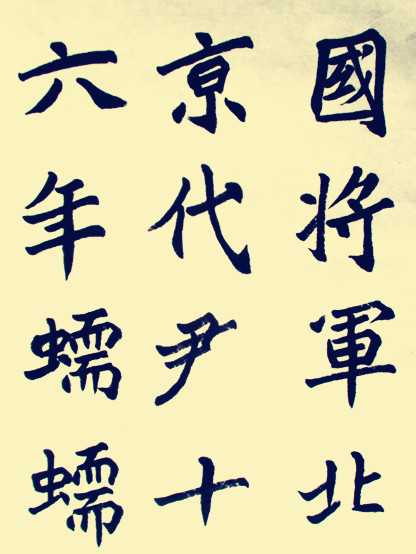 國將軍北
京代尹十
六年蠕蠕